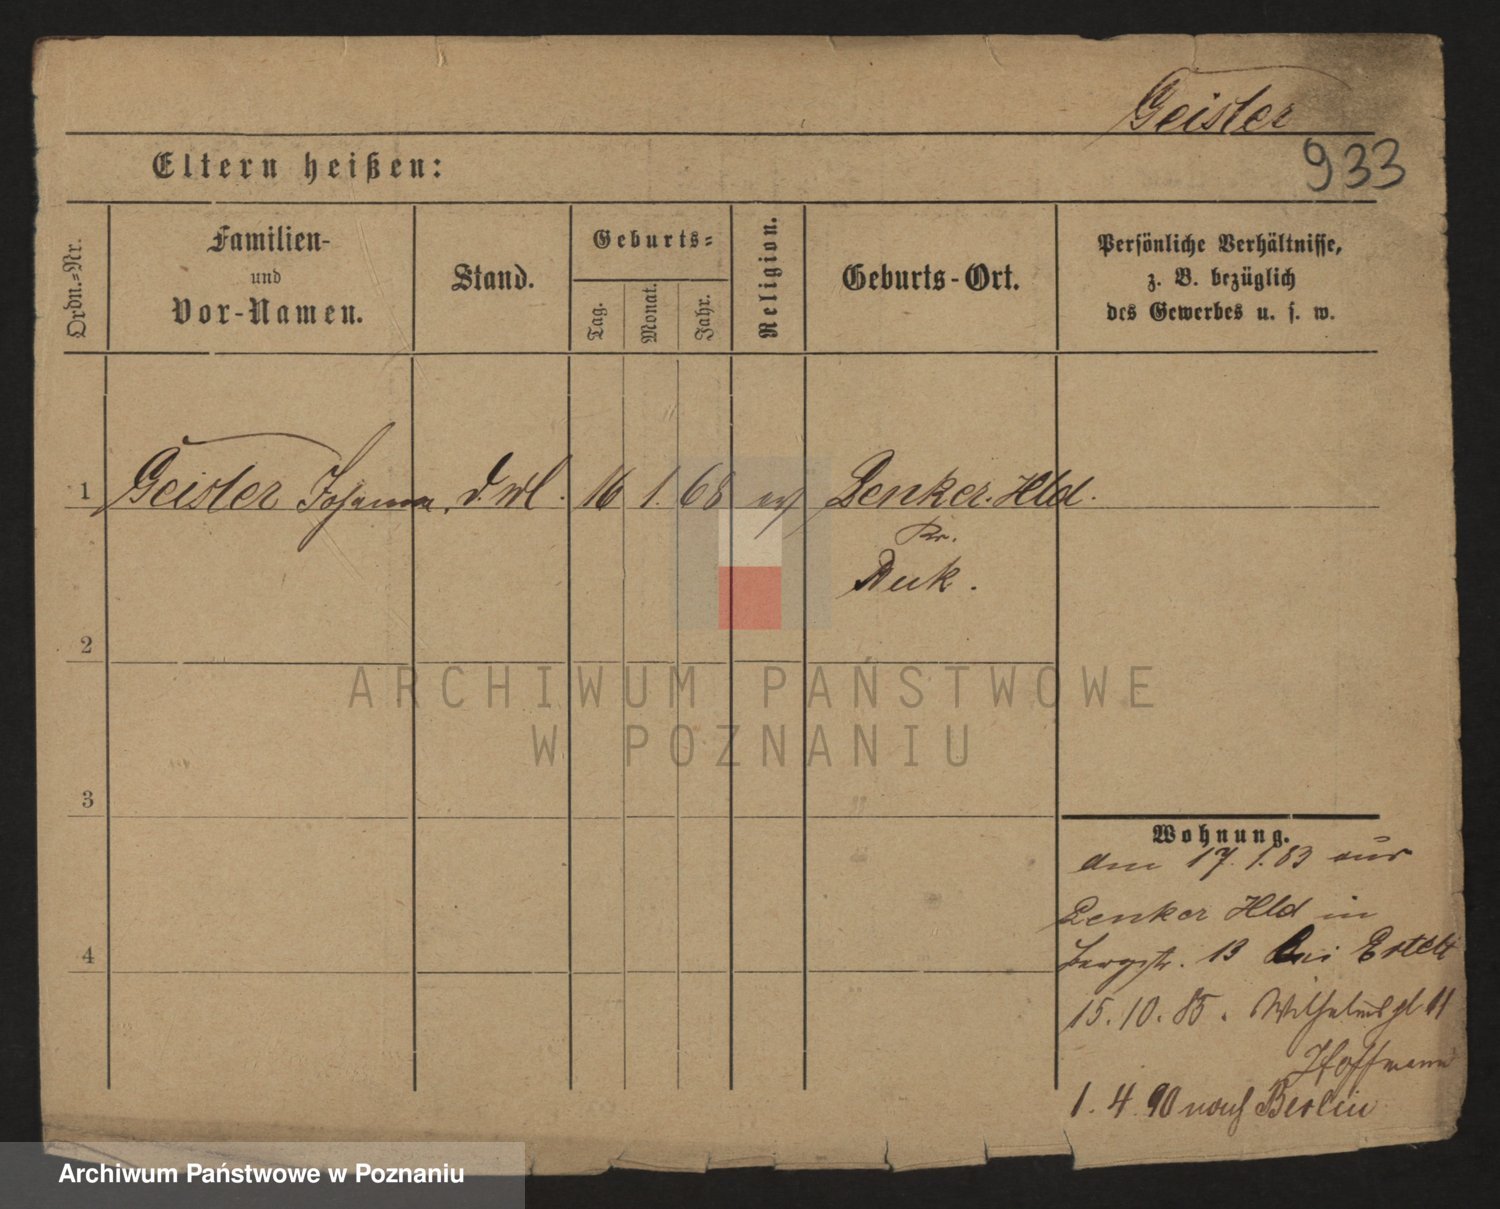 Geisler
933
Eltern heißen:
Ordn.-Nr.
Familien-
und
Vor-Namen.
Stand.
Geburts-
Tag.
Monat.
Jahr.
Religion.
Geburts-Ort.
Persönliche Verhältnisse,
z. B. bezüglich
des Gewerbes u. s. w.
1 Geisler Johanna. 16 1. 68 ev Zenker. Hld.
Kr.
Buk.
2
ARCHIWUM PAŃSTWOWE
W POZNANIU
3
Wohnung.
am 17. 1. 83 aus
Zenker Hld in
Bergstr. 13 bei
15. 10. 85. Wilhelmspl 11
Hoffmann
4
1. 4. 90 nach Berlin
Archiwum Państwowe w Poznaniu